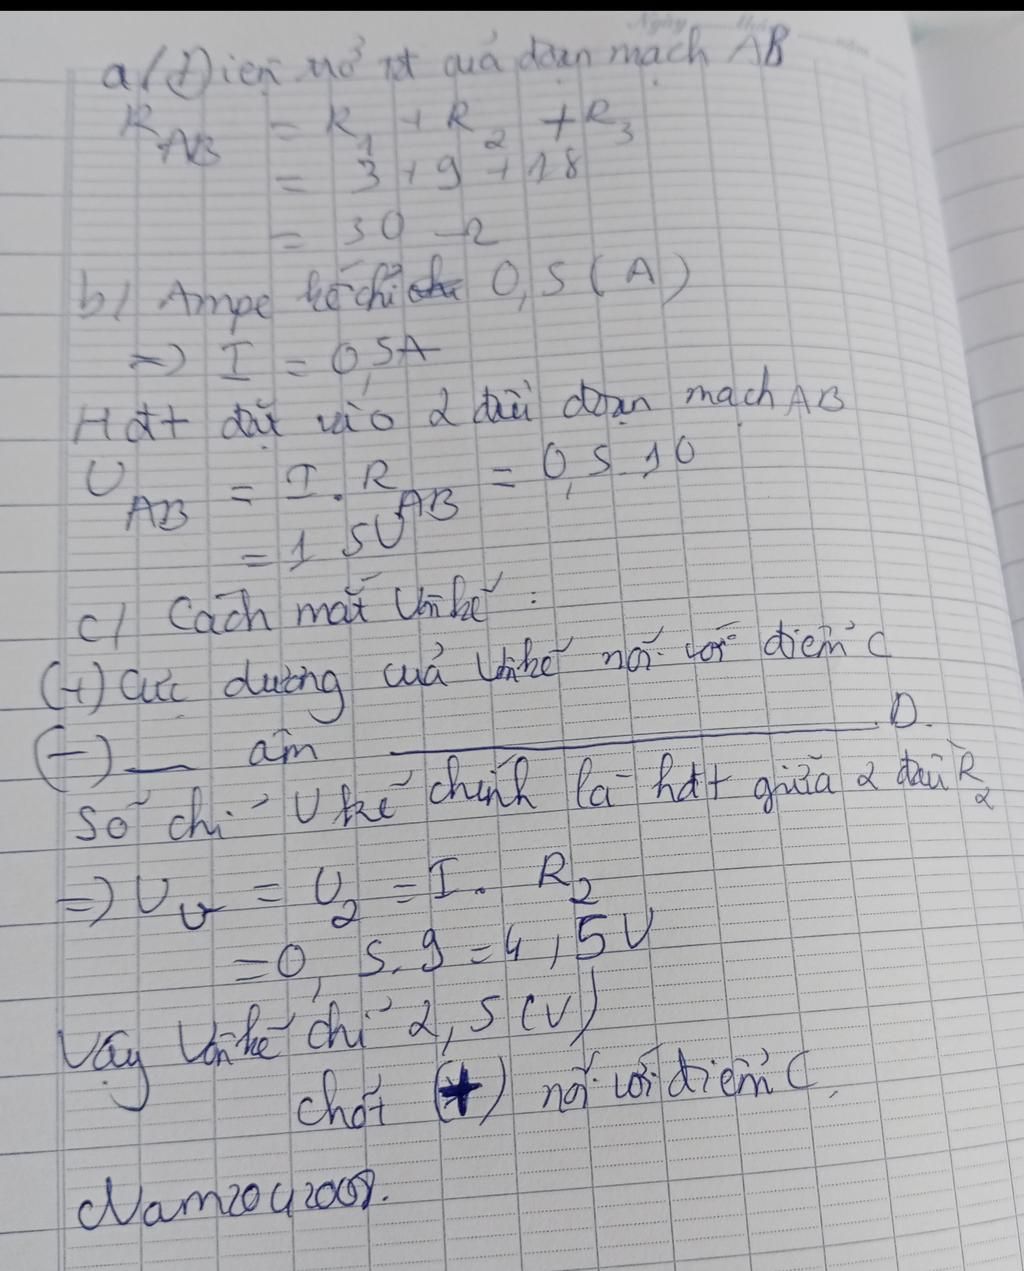 a/ Điện trở tđ của đoạn mạch AB
R_AB = R_1 + R_2 + R_3
= 3 + 9 + 18
= 30 Ω
b/ Ampe kế chỉ 0,5 (A)
=> I = 0,5A
Hđt đặt vào 2 đầu đoạn mạch AB
U_AB = I . R_AB = 0,5 10
= 15V
c/ Cách mắt Vôn kế :
(+) Cực dương của Vôn kế nối với điểm C
(-) — âm ——— D.
Số chỉ V kế chính là hđt giữa 2 đầu R_2
=> U_v = U_2 = I. R_2
= 0,5.9 = 4,5V
Vậy Vôn kế chỉ 2,5 (V)
chốt (+) nối với điểm C.
Nam2042008.